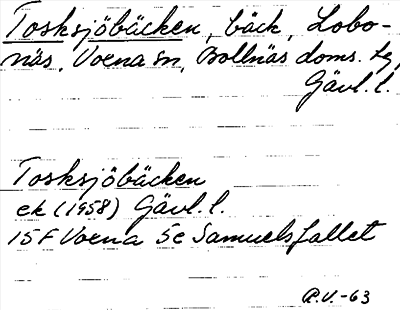 Tosksjöbäcken, bäck, Lobo-
näs, Voxna sn, Bollnäs doms. tg,
Gävl. l.
Tosksjöbäcken
ek (1958) Gävl. l.
15F Voxna 5e Samuelsfallet
R.V.-63